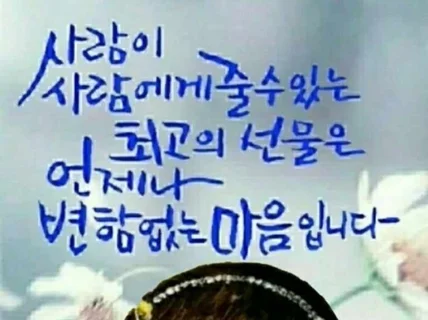 사람이
사람에게 줄수있는
최고의 선물은
언제나
변함없는 마음입니다